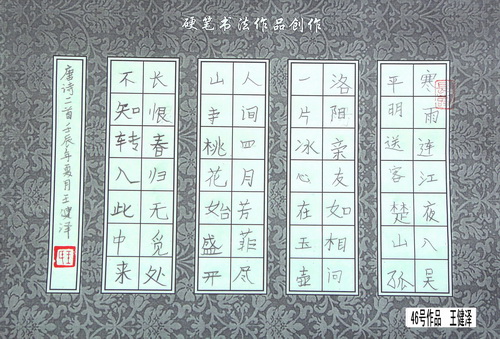 硬笔书法作品创作
寒雨连江夜入吴
平明送客楚山孤
洛阳亲友如相问
一片冰心在玉壶
人间四月芳菲尽
山寺桃花始盛开
长恨春归无觅处
不知转入此中来
唐诗二首壬辰年夏月王健泽
46号作品 王健泽